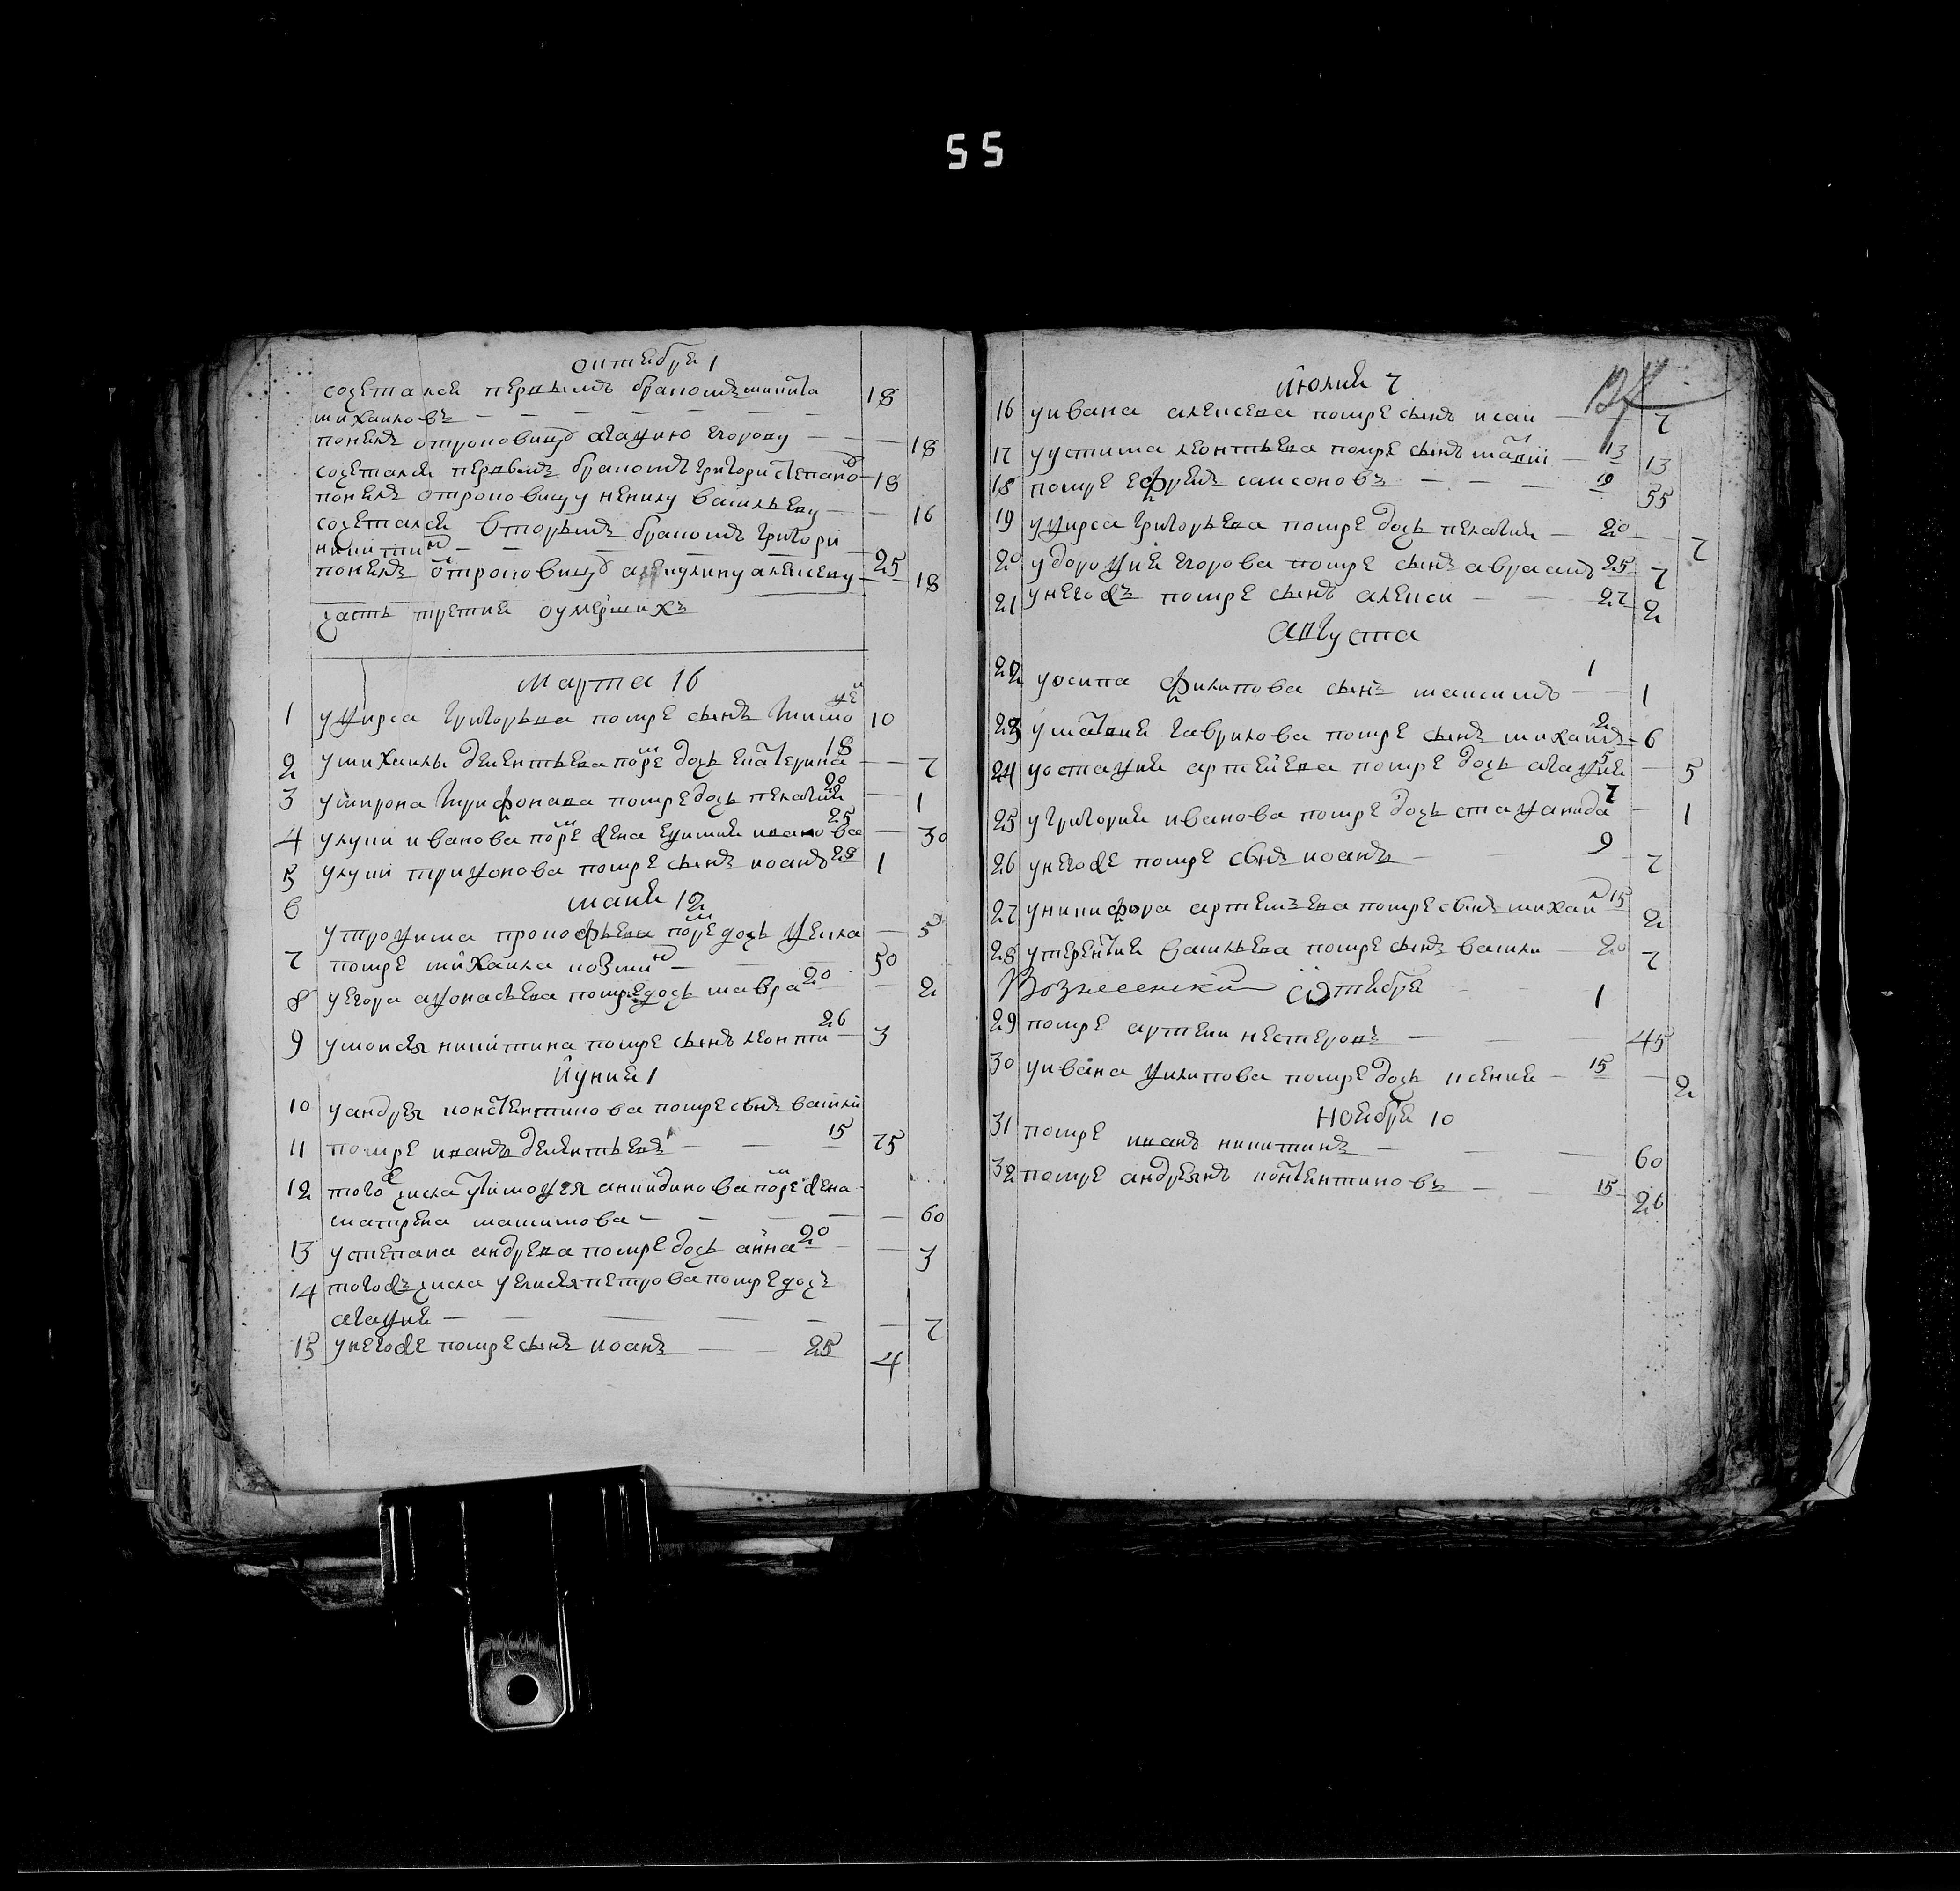 55
октебря 1
сочетался первымъ бракомъ никита 18
михаиловъ
понелъ отроковицу агафию егорову 18
сочетался первымъ бракомъ григори степано 18
понелъ отроковицу ненилу васильеву 16
сочетался вторымъ бракомъ григори
никитин 25
понелъ отроковицу акулину алексеву 18
часть третия оумершихъ
марта 16
1 у фирса григорьева помре сынъ тимофеи 10
2 у михаилы дементьева помре дочь екатерина 18 7
3 у мирона трифонава помре дочь пелагия 20 1
4 у луки иванова помре жена ефимия иванова 25 30
5 у луки трифонова помре сынъ иоанъ 28 1
6 маия 12
у трофима прокофьева помре дочь фекла 5
7 помре михаила козмин 50
8 у егора афонасьева помре дочь мавра 20 2
9 у моисея никитина помре сынъ леонти 26 3
иуния 1
10 у андрея констентинова помре сынъ васили
11 помре иванъ дементьевъ 15 75
12 того ж числа у тимофея помре жена
матрена 60
13 у степана андрева помре дочь анна 20 3
14 того ж числа у елисея петрова помре дочь
агафия 7
15 у него же помре сынъ иоанъ 25 4
июлия 7
16 у ивана алексева помре сынъ исаи 7
17 у устима леонтьева помре сынъ матвии 13 13
18 помре ефремъ самсоновъ 19 55
19 у фирса григорьева помре дочь пелагия 20 7
20 у дорофия егорова помре сынъ авраамъ 25 7
21 у него ж помре сынъ алекси 27 2
августа
22 у осипа филипова сынъ максимъ 1 1
23 у матвия гаврилова помре сынъ михаилъ 2 6
24 у остафия артемева помре дочь агафия 5 5
25 у григория иванова помре дочь стефанида 7 1
26 у него же помре сынъ иоанъ 9 7
27 у никифора артемьева помре сынъ михаил 15 2
28 у терентия васильева помре сынъ васили 20 7
Вознесенский
сентебря 1
29 помре артеми нестеровъ 45
30 у ивана филипова помре дочь ксения 15 2
ноебря 10
31 помре иванъ никитинъ 60
32 помре андреянъ констентиновъ 15 26